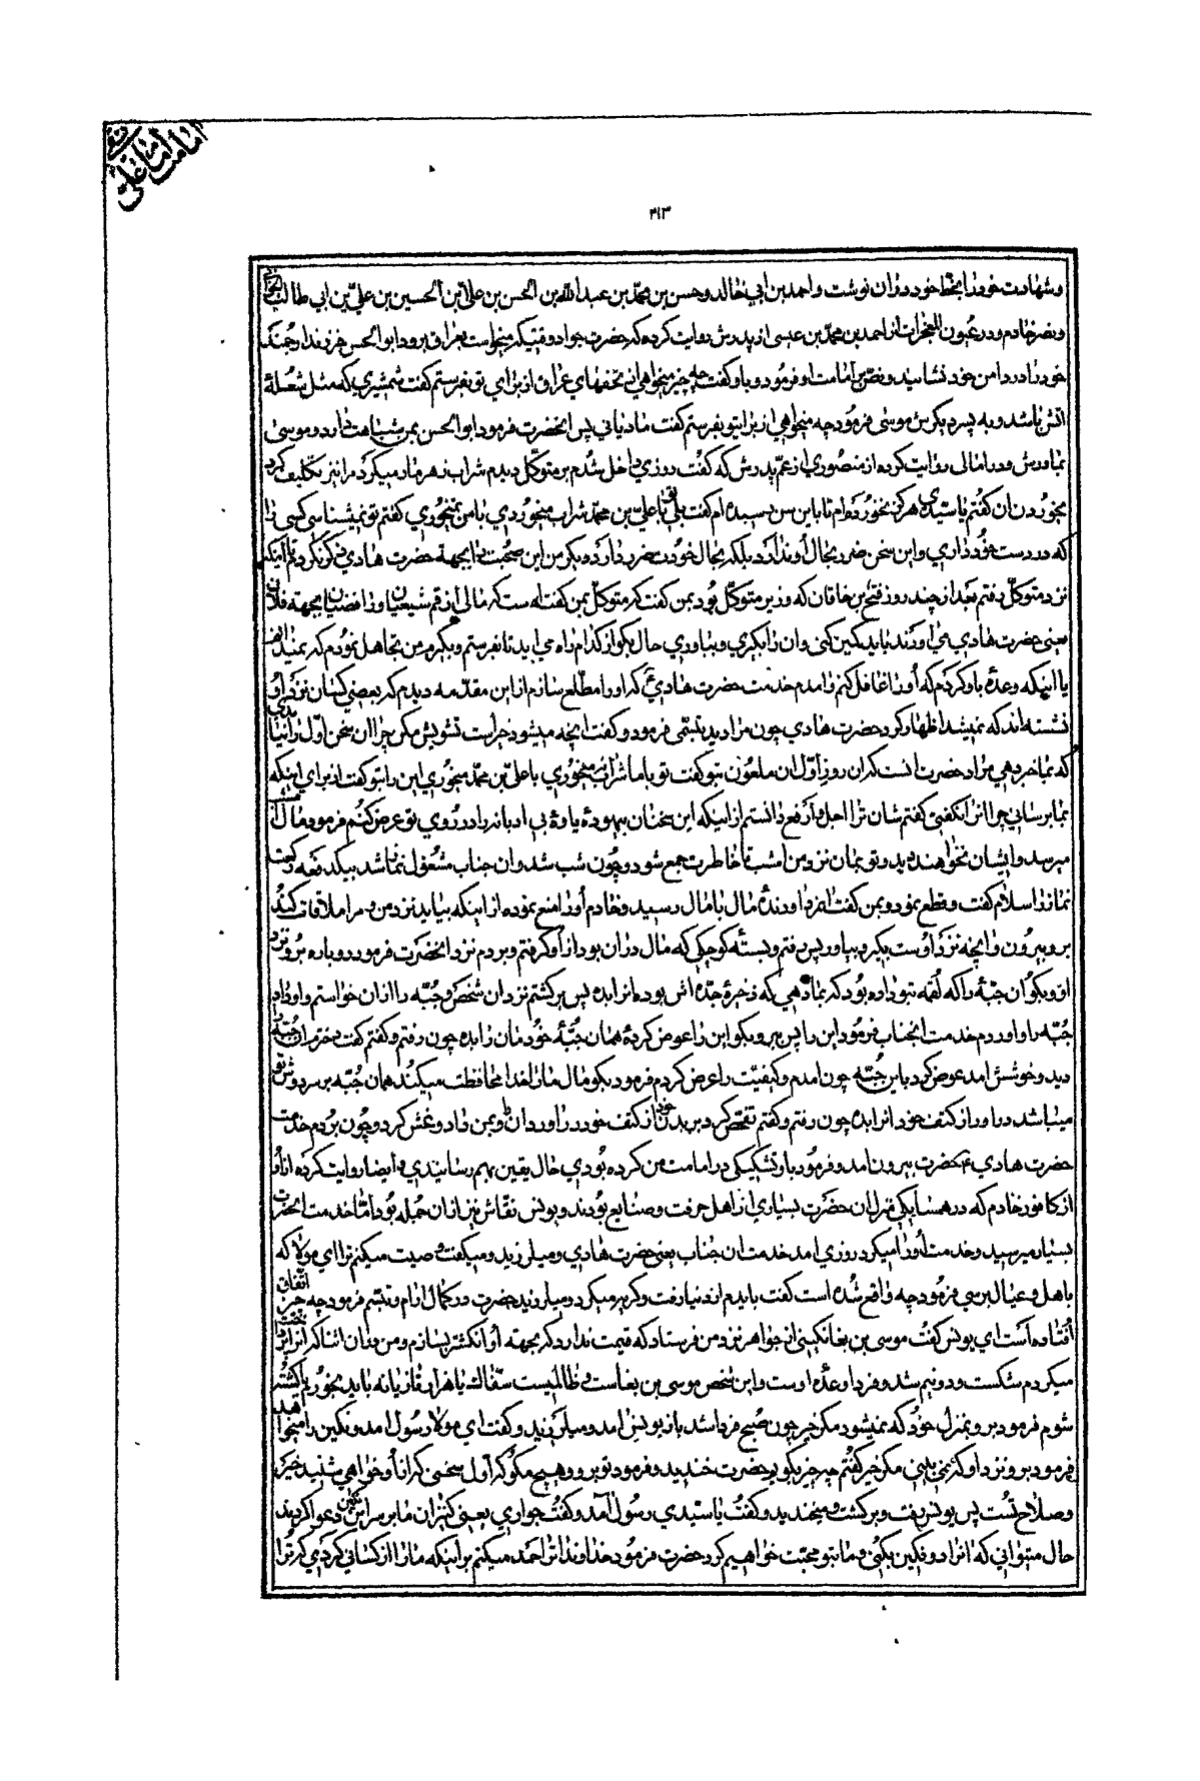 امامت امام علی نقی
۳۱۳
و شهادت خود را بخط خود در ان نوشت و احمد بن ابی خالد و حسن بن محمد بن عبدالله بن الحسن بن علی بن الحسین بن علی بن ابی طالب
و نصر خادم و در عیون المعجزات از احمد بن محمد بن عیسی از پدرش روایت کرده که حضرت جواد وقتیکه میخواست بعراق برود ابو الحسن فرزند ارجمند
خود را در دامن خود نشانید و نص بر امامت او فرمود و باو گفت چه چیز میخواهی از تحفهای عراق از برای تو بفرستم گفت شمشیری که مثل شعلهٔ
اتش باشد و به پسر دیگرش موسی فرمود چه میخواهی از برایتو بفرستم گفت مادیانی پس انحضرت فرمود ابو الحسن بمن شباهت دارد و موسی
بمادرش و در امالی روایت کرده از منصوری از عم پدرش که گفت روزی داخل شدم بر متوکل دیدم شراب زهر مار میکرد مرا نیز تکلیف کرد
بخوردن ان گفتم یا سیدی هرگز نخورده ام تا باین سن رسیده ام گفت بلی با علی بن محمد شراب میخوردی با من نمیخوری گفتم تو نمیشناسی کسی را
که در دست خود داری و این سخن ضرر بحال او ندارد بلکه بحال خودت ضرر دارد و دیگر من این صحبت را بجهة حضرت هادی ذکر نکردم تا اینکه
نزد متوکل رفتم بعد از چند روز فتح بن خاقان که وزیر متوکل بود بمن گفت که متوکل بمن گفته است که مالی از قم شیعیان و رافضیان بجهة فلان
یعنی حضرت هادی می اورند باید کمین کنی و ان را بگیری و بیاوری حال بگو از کدام راه می اید تا بفرستم و بگیرم من تجاهل نمودم که نمیدانم
یا اینکه وعده باو کردم که او را غافل کنم و امدم خدمت حضرت هادی که او را مطلع سازم از این مقدمه دیدم که بعضی کسان نزد او
نشسته اند که نمیشد اظهار کرد حضرت هادی چون مرا دید تبسمی فرمود و گفت انچه میشود خیر است تشویش مکن چرا ان سخن اول را نیامدی
که بما خبر دهی مراد حضرت انست که ان روز اول ان ملعون بتو گفت تو با ما شراب نمیخوری با علی بن محمد میخوری این را بتو گفت از برای اینکه
بما برسانی چرا انرا نگفتی گفتم شان ترا اجل و ارفع دانستم از اینکه این سخنان بیهودهٔ یاوهٔ بی ادبانه را در روی تو عرض کنم فرمود مال امشب
میرسد و ایشان نخواهند دید و تو بمان نزد من امشب تا خاطرت جمع شود و چون شب شد و ان جناب مشغول نماز شد بیکدفعه رکعت
نماز را سلام گفت و قطع نمود و بمن گفت امد اورندهٔ مال با مال رسید و خادم او را منع نموده از اینکه بیاید نزد من و مرا ملاقات کند
برو بیرون و انچه نزد اوست بگیر و بیاور پس رفتم و بستهٔ کوچکی که مال در ان بود از او گرفتم و بردم نزد انحضرت فرمود دوباره برو نزد
او و بگو ان جبهٔ را که لقمه بتو داده بود که بما دهی که ذخیرهٔ جده اش بوده انرا بده پس برگشتم نزد ان شخص و جبه را از ان خواستم و او داد
جبه را و اوردم خدمت انجناب فرمود این را پس ببر و بگو این را عوض کردهٔ همان جبهٔ خودمان را بده چون رفتم و گفتم گفت دخترم ان جبه را
دید و خوشش امد عوض کرد باین جبه چون امدم و کیفیت را عرض کردم فرمود بگو مال ما را خدا محافظت میکند همان جبه بر سر دوش تو
میباشد دراور از کتف خود انرا بده چون رفتم و گفتم تفحص کرد بر بدن خود از کتف خود دراورد ان را و بمن داد و غش کرد و چون بردم خدمت
حضرت هادی حضرت بیرون امد و فرمود باو تشکیکی در امامت من کرده بودی حال یقین بهم رسانیدی و ایضا روایت کرده از او
از کافور خادم که در همسایکی منزل ان حضرت بسیاری از اهل حرفت و صنایع بودند و یونس نقاش نیز از ان جمله بود اما خدمت انحضرت
بسیار میرسید و خدمت او را میکرد روزی امد خدمت ان جناب یعنی حضرت هادی و میلرزید و میگفت وصیت میکنم ترا ای مولا که
باهل و عیالم برسی فرمود چه واقع شده است گفت بایدم از دنیا رفت و گریه میکرد و میلرزید حضرت در کمال ارام و تبسم فرمود چه چیز اتفاق
افتاده است ای یونس گفت موسی بن بغا نگینی از جواهر نزد من فرستاد که قیمت ندارد که بجهة او انکشتر بسازم و من در ان اثنا که انرا درست
میکردم شکست و دو نیم شد و فردا وعدهٔ اوست و این شخص موسی بن بغاست و ظالمیست سفاک یا هزار تازیانه باید بخورم یا کشته
شوم فرمود برو بمنزل خود که نمیشود مکر خیر چون صبح فردا شد باز یونس امد و میلرزید و گفت ای مولا رسول امد و نکین را میخواهد
فرمود برو نزد او که نمی بینی مکر خیر گفتم چه چیز بگویم حضرت خندید و فرمود تو برو و هیچ مگو که اول سخنی که از او خواهی شنید خیر
و صلاح تست پس یونس رفت و برکشت و میخندید و گفت یا سیدی رسول امد و گفت جواری یعنی کنیزان ما بر سر این نکین دعوا کردند
حال میتوانی که انرا دو نکین بکنی و ما بتو محبت خواهیم کرد حضرت فرمود خداوندا ترا حمد میکنم بر اینکه ما را از کسانی کردی که ترا